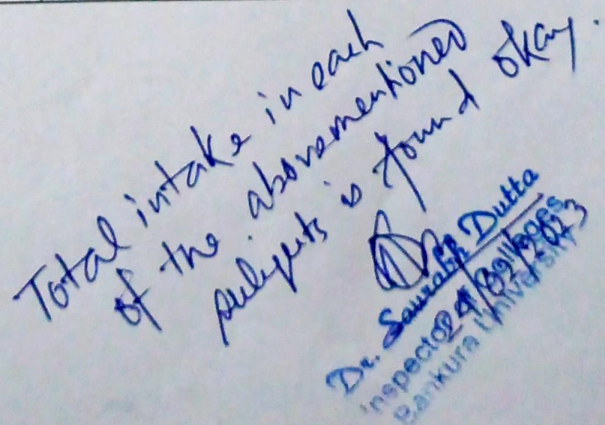 Total intake in each
of the abovementioned
subjects is found okay.
Dr. Saurabh Dutta
Inspector of Colleges
Bankura University